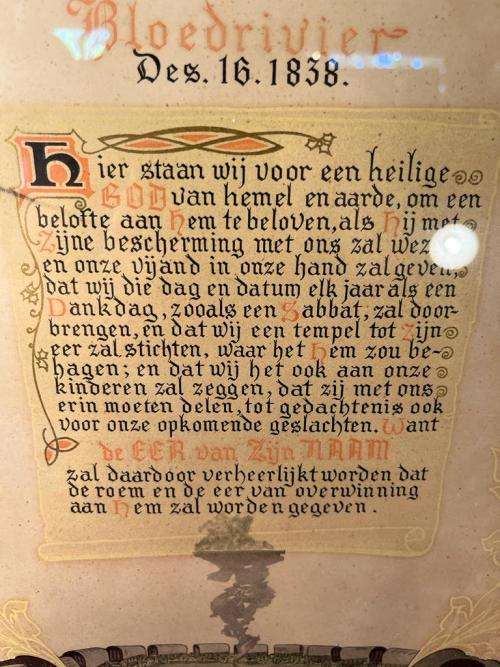 Bloedrivier
Des. 16. 1838.
Hier staan wij voor een heilige
GOD van hemel en aarde, om een
belofte aan Hem te beloven, als Hij met
Zijne bescherming met ons zal wez
en onze vijand in onze hand zal geven,
dat wij die dag en datum elk jaar als een
Dankdag, zooals een Sabbat, zal door-
brengen, en dat wij een tempel tot Zijn
eer zal stichten, waar het Hem zou be-
hagen; en dat wij het ook aan onze
kinderen zal zeggen, dat zij met ons
erin moeten delen, tot gedachtenis ook
voor onze opkomende geslachten. Want
de EER van Zijn NAAM
zal daardoor verheerlijkt worden, dat
de roem en de eer van overwinning
aan Hem zal worden gegeven.